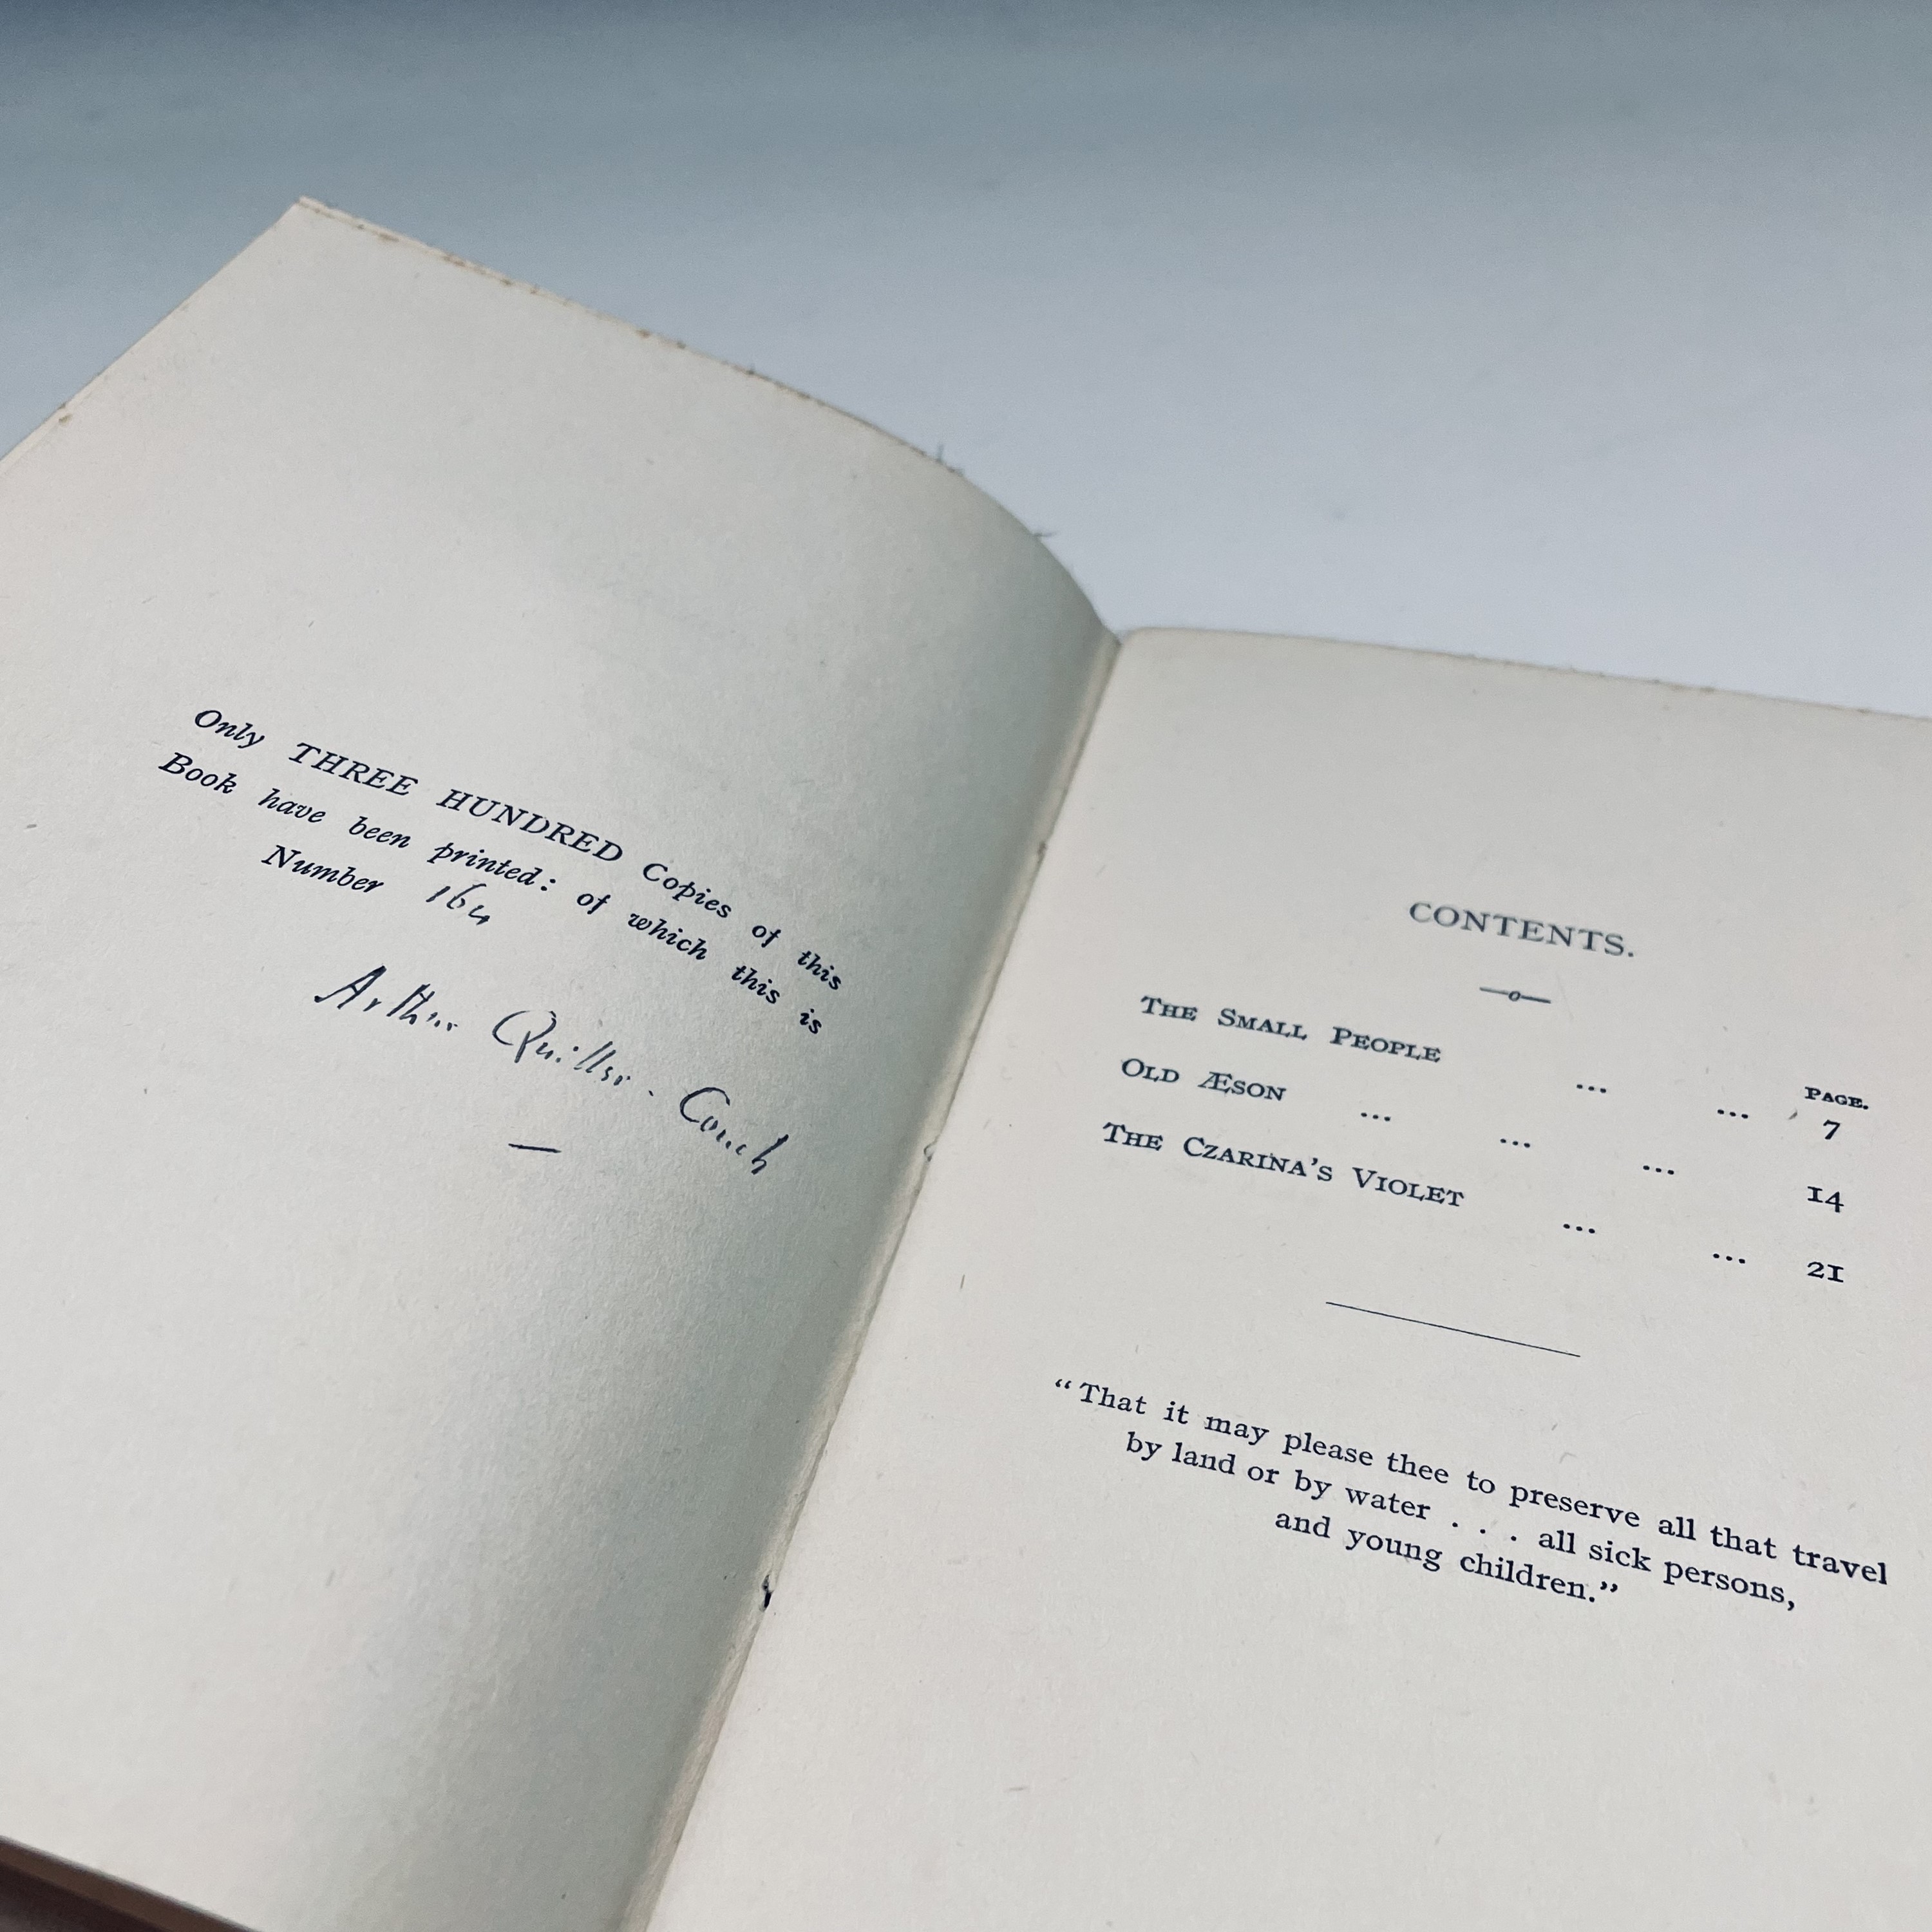 Only THREE HUNDRED Copies of this
Book have been printed: of which this is
Number 164
Arthur Quiller-Couch
CONTENTS.
PAGE.
The Small People ... ... 7
Old Æson ... ... ... 14
The Czarina's Violet ... ... 21
“That it may please thee to preserve all that travel
by land or by water . . . all sick persons,
and young children.”